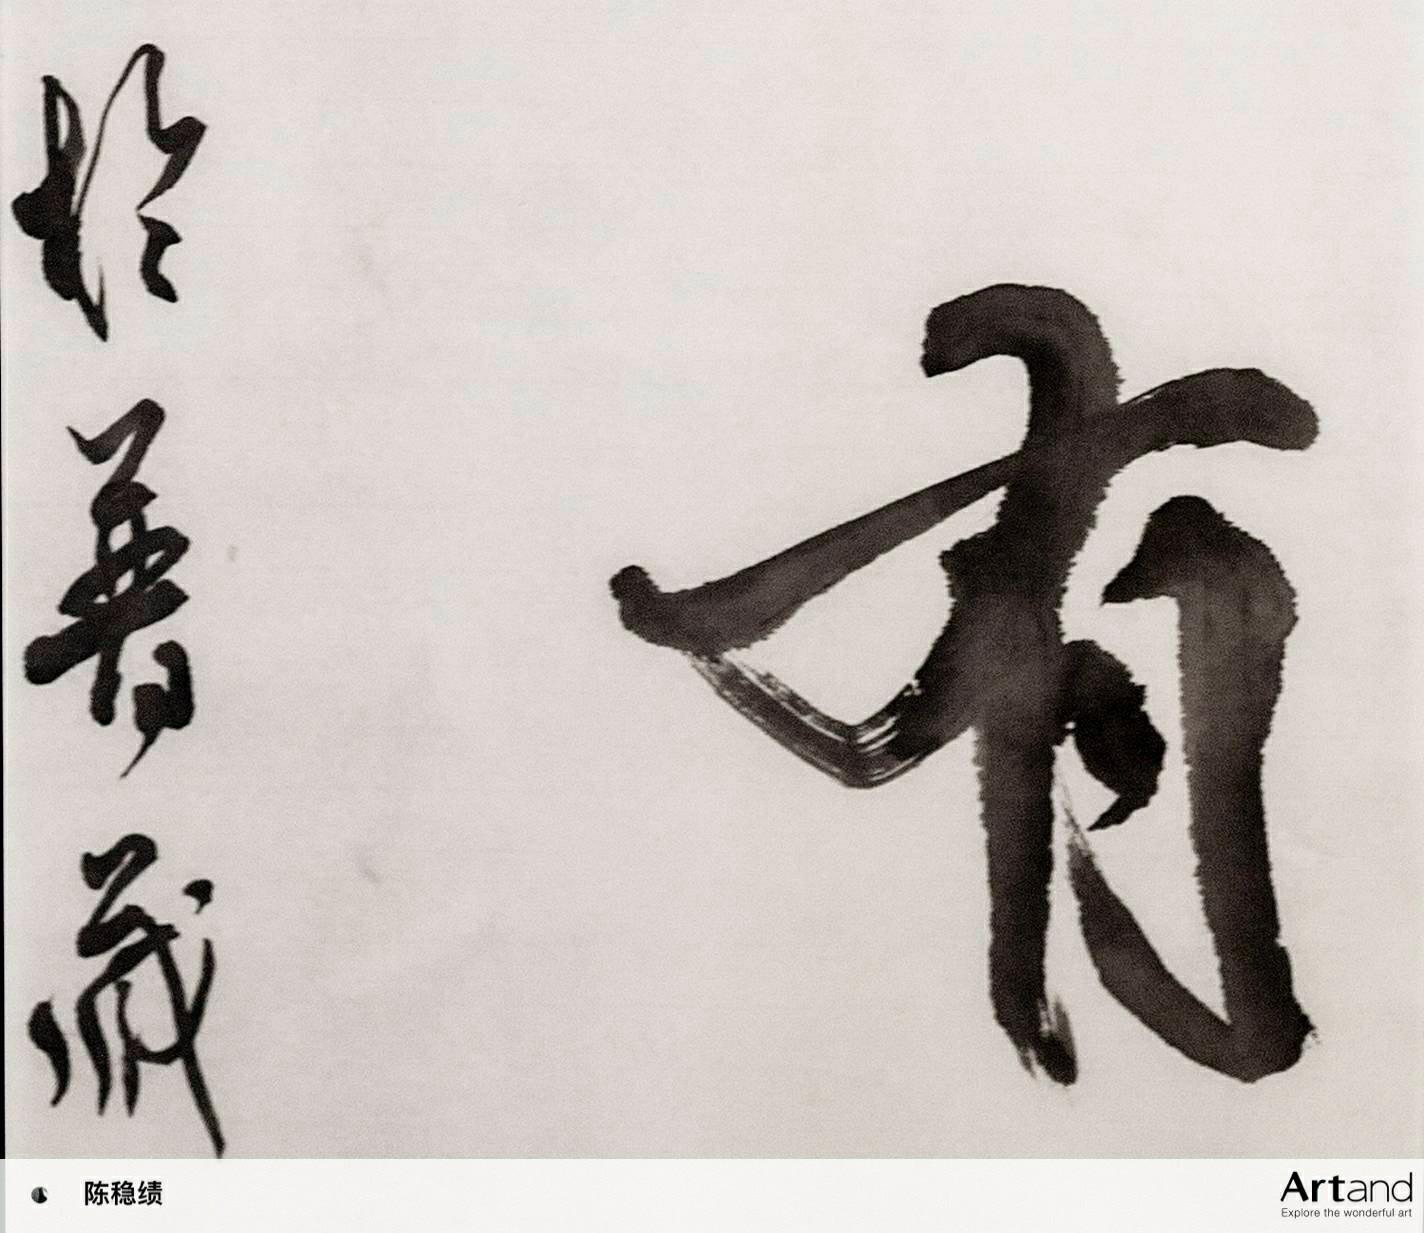 有
於
陈稳绩
Artand
Explore the wonderful art